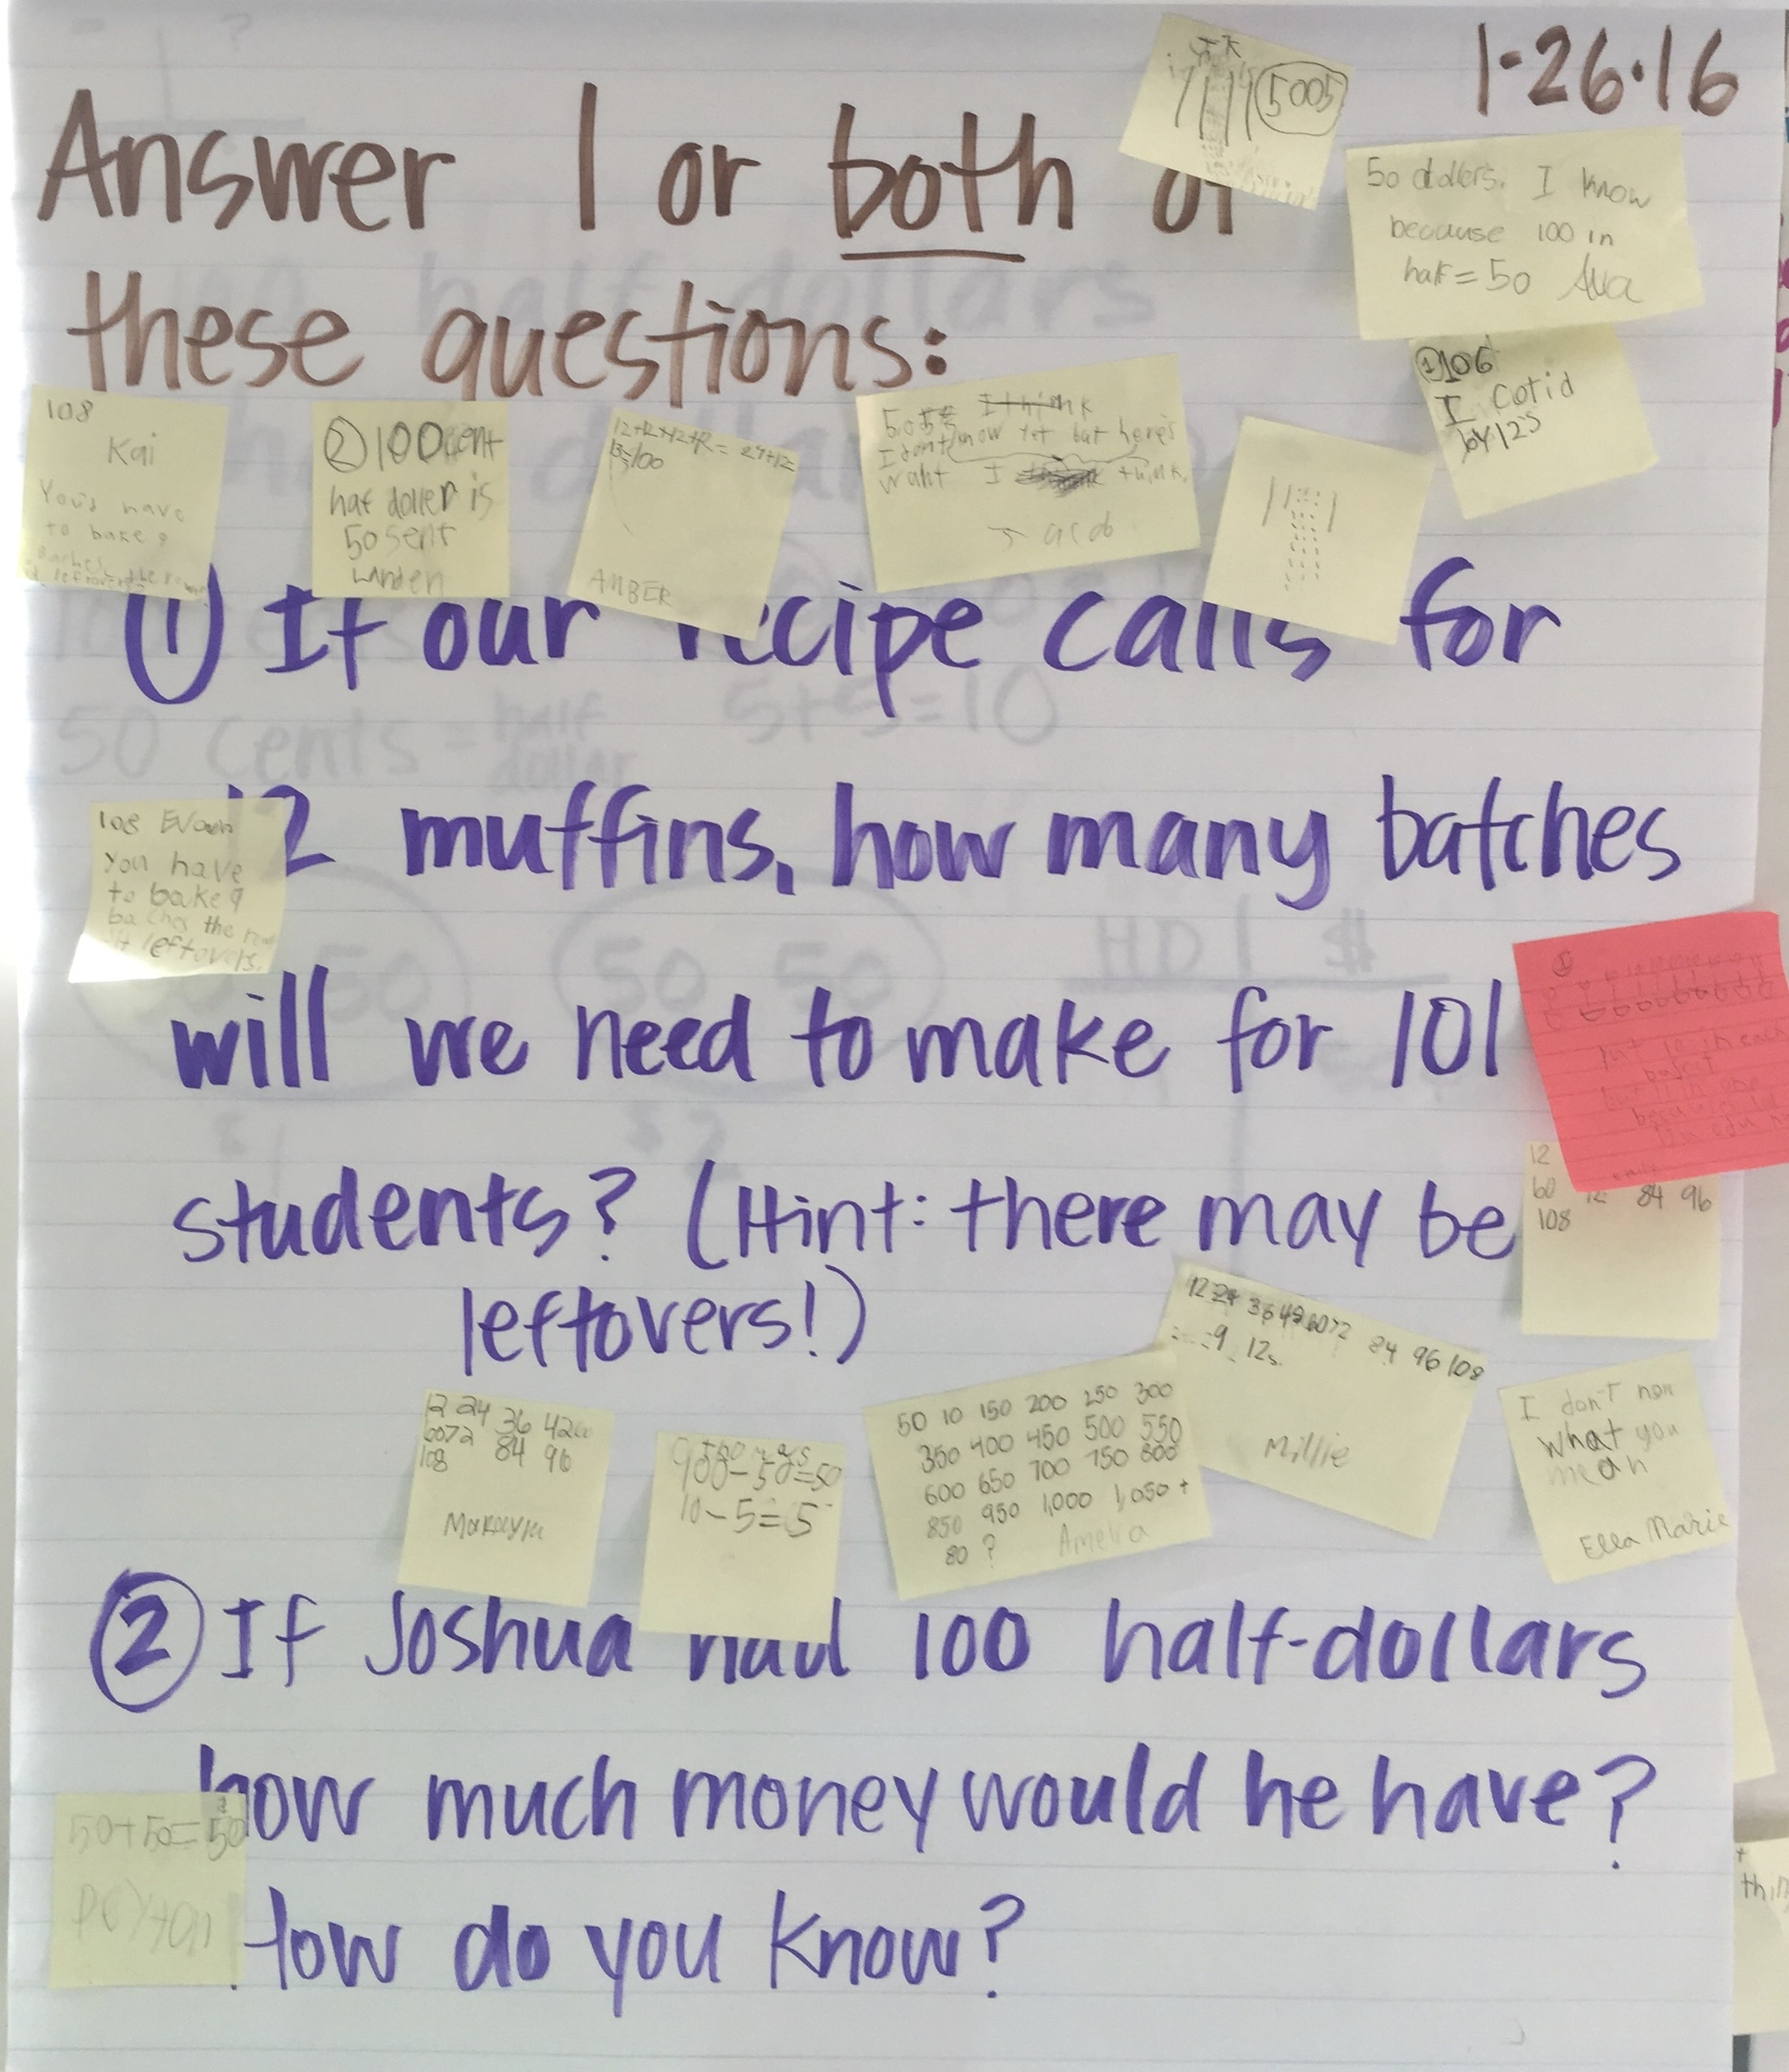 1-26-16
Answer 1 or both of
these questions:
5005
50 dollers. I know
because 100 in
half = 50 Ava
①106
I cotid
by 12s
108
Kai
to bake 9
②100cent
haf doller is
50 sent
Landen
12+12+12+12= 24+12
AMBER
I think
I don't know yet but here's
waht I think.
Jacob
① If our recipe calls for
12 muffins, how many batches
will we need to make for 101
students? (Hint: there may be
leftovers!)
108 Evan
You have
to bake 9
baches the
leftovers.
12
60 84 96
108
12 24 36 48 60 72 84 96 108
9 12s
Millie
12 24 36 42
6072 84 96
108
Makayla
900-50=50
10-5=5
50 10 150 200 250 300
350 400 450 500 550
600 650 700 750 800
850 950 1,000 1,050 +
80 ? Amelia
I don't now
what you
mean
Ella Marie
② If Joshua had 100 half-dollars
how much money would he have?
How do you know?
50+50=50
Peyton